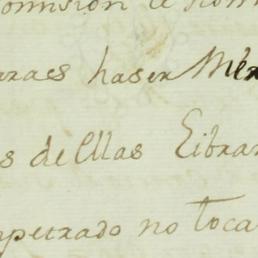 omision de nom
araes haser Mer
s de ellas Librar
mpetrado no toca